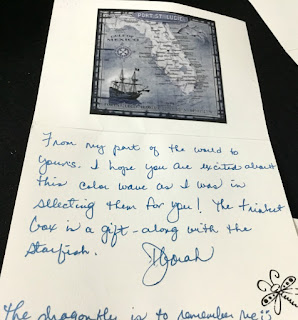 PORT ST. LUCIE
GULF OF
MEXICO
From my part of the world to
yours. I hope you are excited about
this color wave as I was in
selecting them for you! The trinket
box is a gift - along with the
starfish.
Deborah
The dragonfly is to remember me is